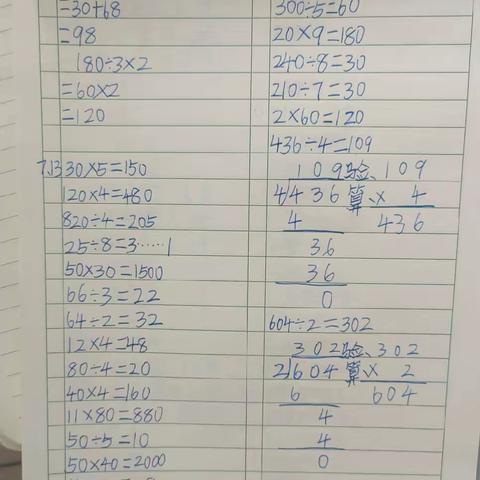 =30+68
=98
180÷3×2
=60×2
=120
7.13 30×5=150
120×4=480
820÷4=205
25÷8=3……1
50×30=1500
66÷3=22
64÷2=32
12×4=48
80÷4=20
40×4=160
11×80=880
50÷5=10
50×40=2000
300÷5=60
20×9=180
240÷8=30
210÷7=30
2×60=120
436÷4=109
109 验、109
4)436 算、× 4
4 436
36
36
0
604÷2=302
302 验、302
2)604 算、× 2
6 604
4
4
0